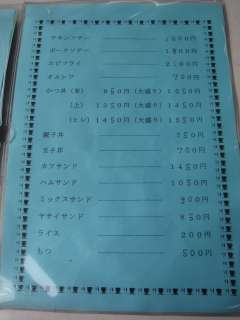 チキンソテー ――― 1800円
ポークソテー ――― 1800円
エビフライ ――― 2100円
オムレツ ――― 700円
かつ丼 (並) 950円 (大盛り) 1050円
(上) 1350円 (大盛り) 1450円
(ヒレ) 1450円 (大盛り) 1550円
親子丼 ――― 850円
玉子丼 ――― 700円
カツサンド ――― 1450円
ハムサンド ――― 1050円
ミックスサンド ――― 900円
ヤサイサンド ――― 850円
ライス ――― 200円
もつ ――― 500円